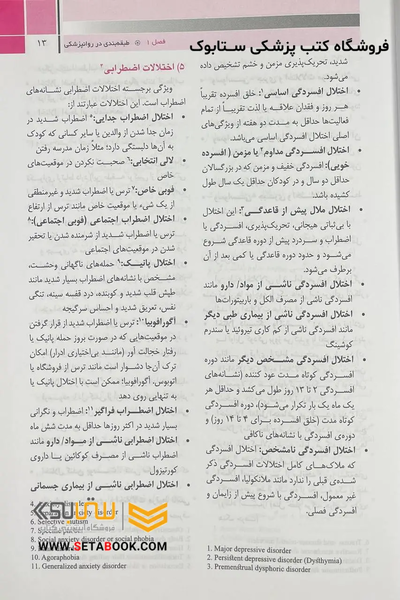 فروشگاه کتب پزشکی ستابوک
فصل ۱ طبقه‌بندی در روانپزشکی ۱۳
شدید، تحریک‌پذیری مزمن و خشم تشخیص داده
می‌شود.
اختلال افسردگی اساسی¹: خلق افسرده تقریباً
هر روز و فقدان علاقه یا لذت تقریباً از تمام
فعالیت‌ها حداقل به مدت دو هفته از ویژگی‌های
اصلی اختلال افسردگی اساسی می‌باشد.
اختلال افسردگی مداوم² یا مزمن (افسرده
خویی): افسردگی خفیف و مزمن که در بزرگسالان
حداقل دو سال و در کودکان حداقل یک سال طول
کشیده باشد.
اختلال ملال پیش از قاعدگی³: این اختلال
با بی‌ثباتی هیجانی، تحریک‌پذیری، افسردگی یا
اضطراب و سردرد پیش از دوره قاعدگی شروع
می‌شود و حدود دوره قاعدگی یا کمی بعد از آن
برطرف می‌شود.
اختلال افسردگی ناشی از مواد/ دارو مانند
افسردگی ناشی از مصرف الکل و باربیتورات‌ها
اختلال افسردگی ناشی از بیماری طبی دیگر
مانند افسردگی ناشی از کم کاری تیروئید یا سندرم
کوشینگ
اختلال افسردگی مشخص دیگر مانند دوره
افسردگی کوتاه مدت عود کننده (نشانه‌های
افسردگی ۲ تا ۱۳ روز طول می‌کشد و حداقل هر
یک ماه یک بار تکرار می‌شود)، دوره افسردگی
کوتاه مدت (خلق افسرده برای ۴ تا ۱۴ روز) و
دوره‌ی افسردگی با نشانه‌های ناکافی
اختلال افسردگی نامشخص: اختلال افسردگی
که ملاک‌های کامل اختلالات افسردگی ذکر
شده‌ی قبلی را ندارد مانند ملانکولیا، افسردگی
غیر معمول، افسردگی با شروع پیش از زایمان و
افسردگی فصلی.
1. Major depressive disorder
2. Persistent depressive disorder (Dysthymia)
3. Premenstrual dysphoric disorder
۵) اختلالات اضطرابی⁴
ویژگی برجسته اختلالات اضطرابی نشانه‌های
اضطراب است. این اختلالات عبارتند از:
اختلال اضطراب جدایی⁵: اضطراب شدید در
زمان جدا شدن از والدین یا سایر کسانی که کودک
به آن‌ها دلبستگی دارد؛ مثلاً زمان مدرسه رفتن
لالی انتخابی⁶: صحبت نکردن در موقعیت‌های
خاص
فوبی خاص⁷: ترس یا اضطراب شدید و غیرمنطقی
از یک شیء یا موقعیت خاص مانند ترس از ارتفاع
اختلال اضطراب اجتماعی (فوبی اجتماعی)⁸:
ترس یا اضطراب شدید از شرمنده شدن یا تحقیر
شدن در موقعیت‌های اجتماعی.
اختلال پانیک⁹: حمله‌های ناگهانی وحشت،
مشخص با نشانه‌های اضطراب بسیار شدید مانند
طپش قلب شدید و کوبنده، درد قفسه سینه، تنگی
نفس، تعریق شدید و احساس سرگیجه
آگورافوبیا¹⁰: ترس یا اضطراب شدید از قرار گرفتن
در موقعیت‌هایی که در صورت بروز حمله پانیک یا
رفتار خجالت آور (مانند بی‌اختیاری ادرار) امکان
ترک آن‌جا دشوار است مانند ترس از فروشگاه یا
اتوبوس. آگورافوبیا؛ ممکن است با اختلال پانیک یا
به تنهایی روی دهد
اختلال اضطراب فراگیر¹¹: اضطراب و نگرانی
بسیار شدید در اکثر روزها حداقل به مدت شش ماه
اختلال اضطرابی ناشی از مواد/ دارو مانند
اضطراب ناشی از مصرف کوکائین یا داروی
کورتیزول
اختلال اضطرابی ناشی از بیماری جسمانی
6. Selective mutism
8. Social anxiety disorder or social phobia
10. Agoraphobia
11. Generalized anxiety disorder
WWW.SETABOOK.COM